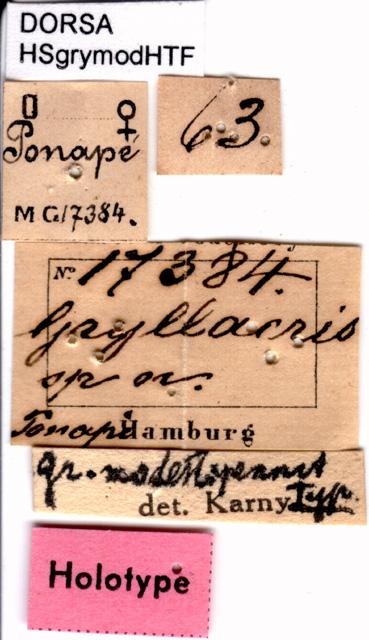 DORSA
HSgrymodHTF
♀
Ponapé
MG17384.
63
Nº 17384.
Gryllacris
sp n.
Ponapé Hamburg
gr. modestipennis
det. Karny Type.
Holotype